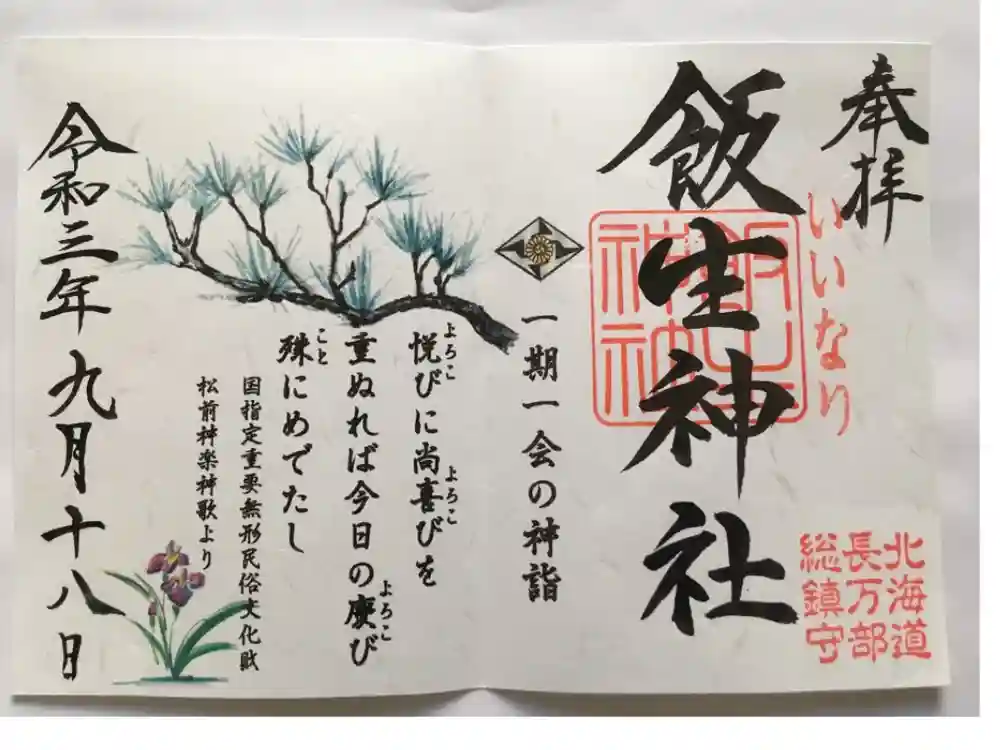 奉拝
いいなり
飯生神社
北海道
長万部
総鎮守
一期一会の神詣
悦びに尚喜びを
よろこ
よろこ
重ぬれば今日の慶び
よろこ
殊にめでたし
こと
国指定重要無形民俗文化財
松前神楽神歌より
令和三年九月十八日